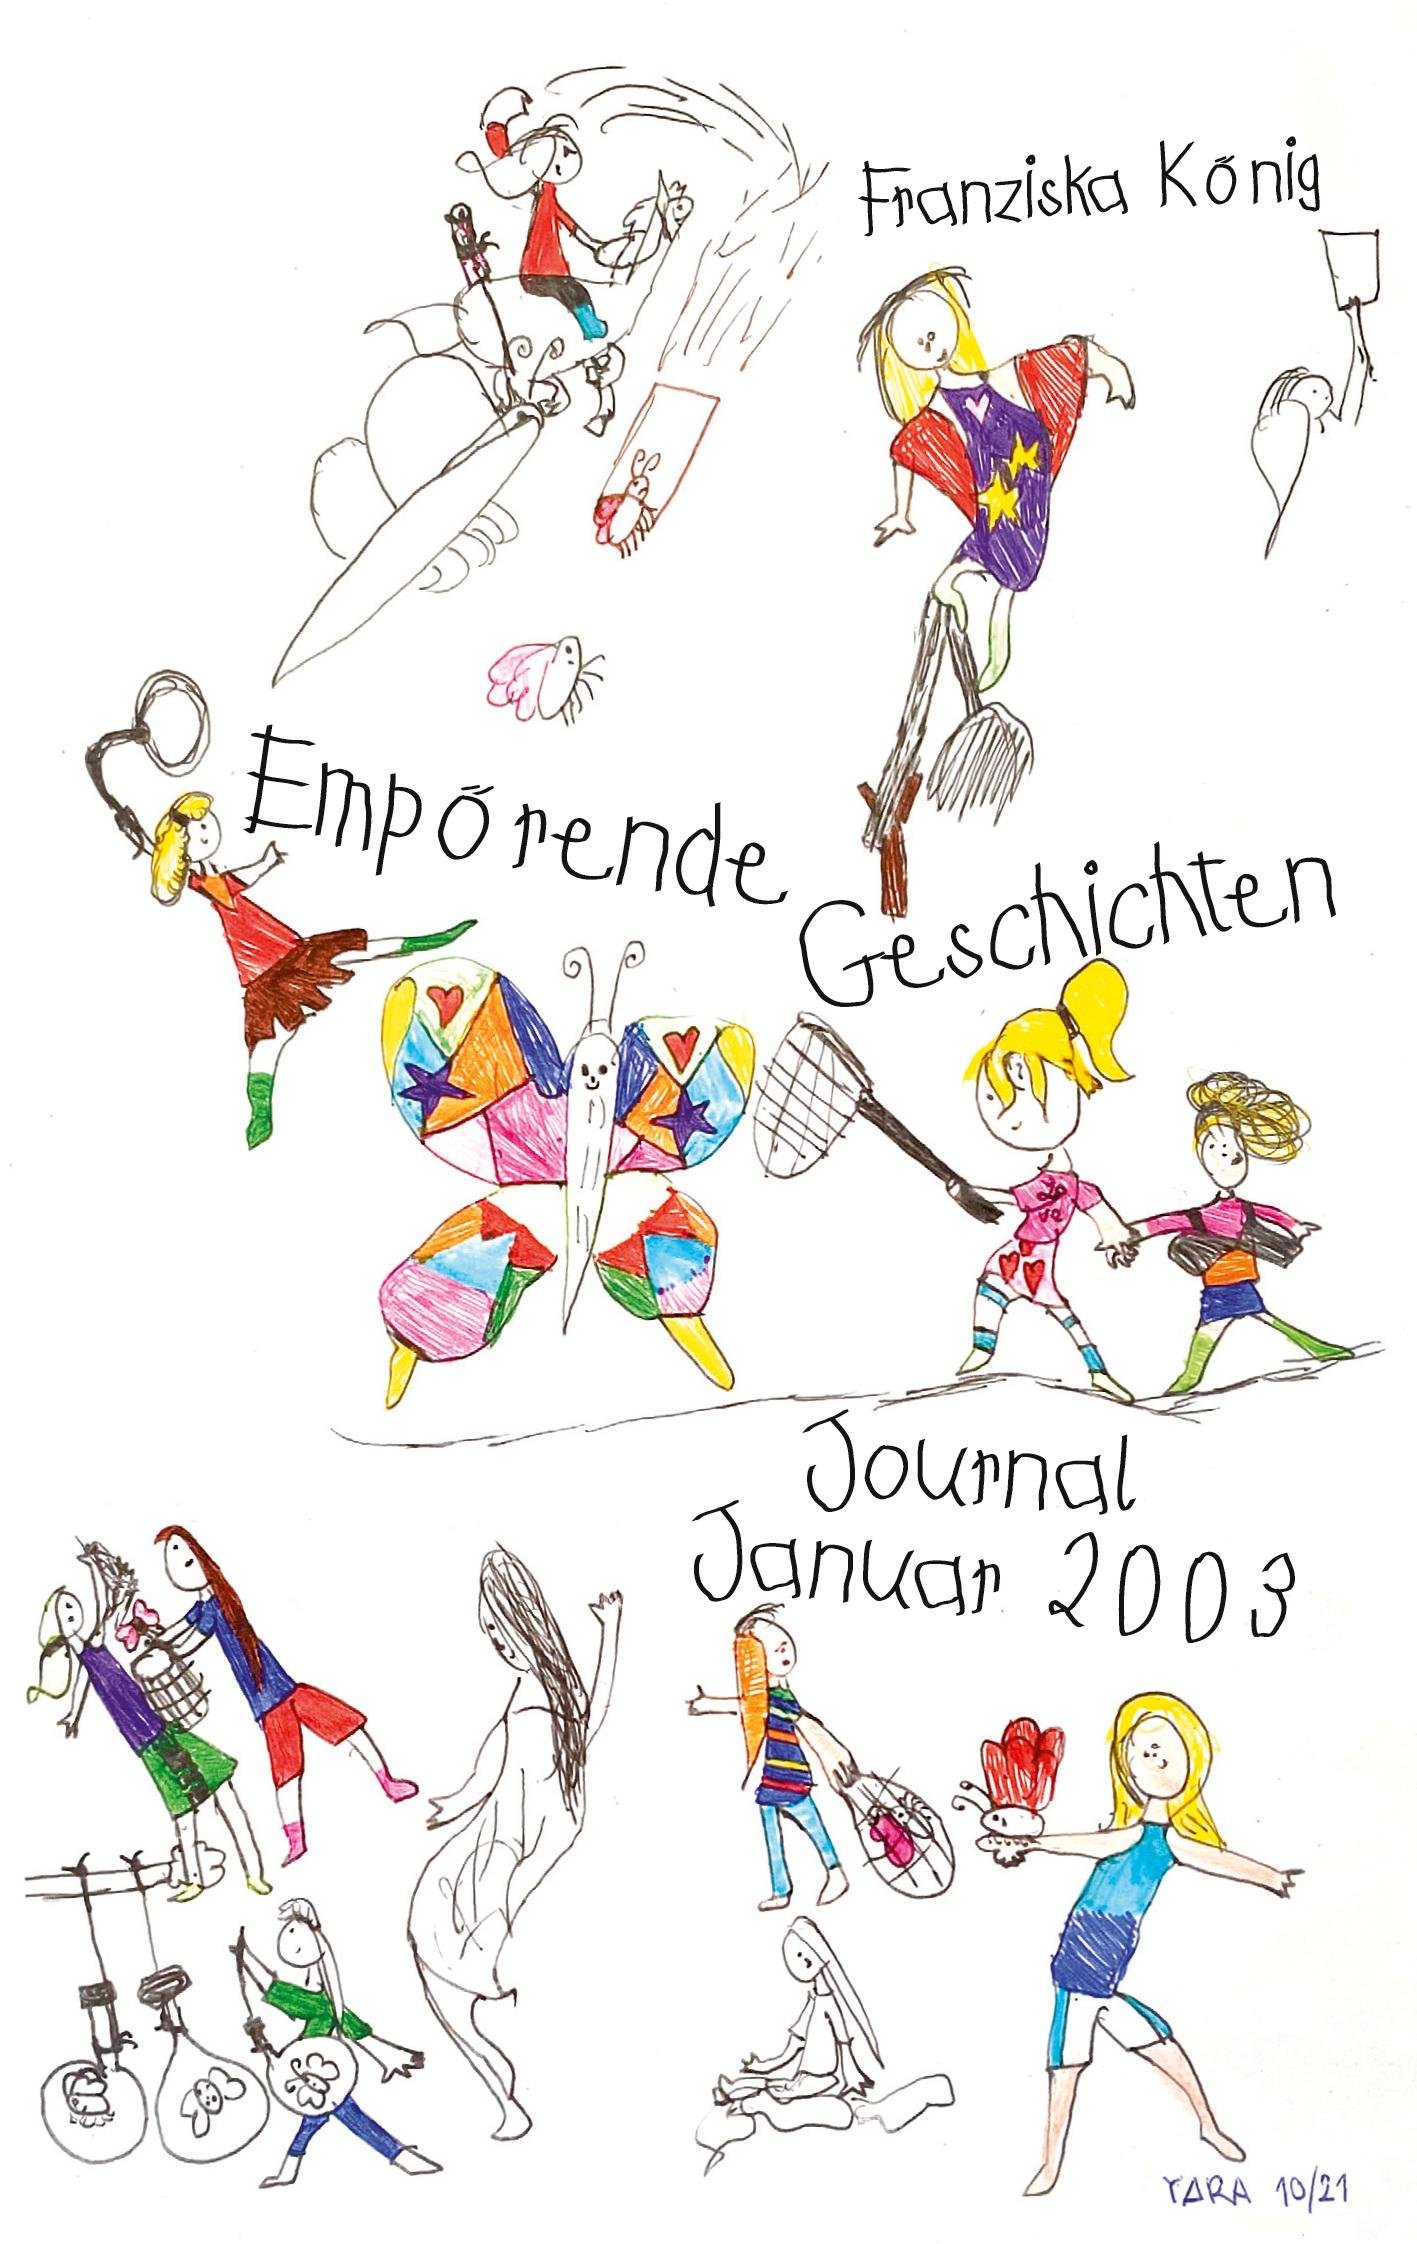 Franziska König
Empörende
Geschichten
Journal
Januar 2003
YARA 10/21